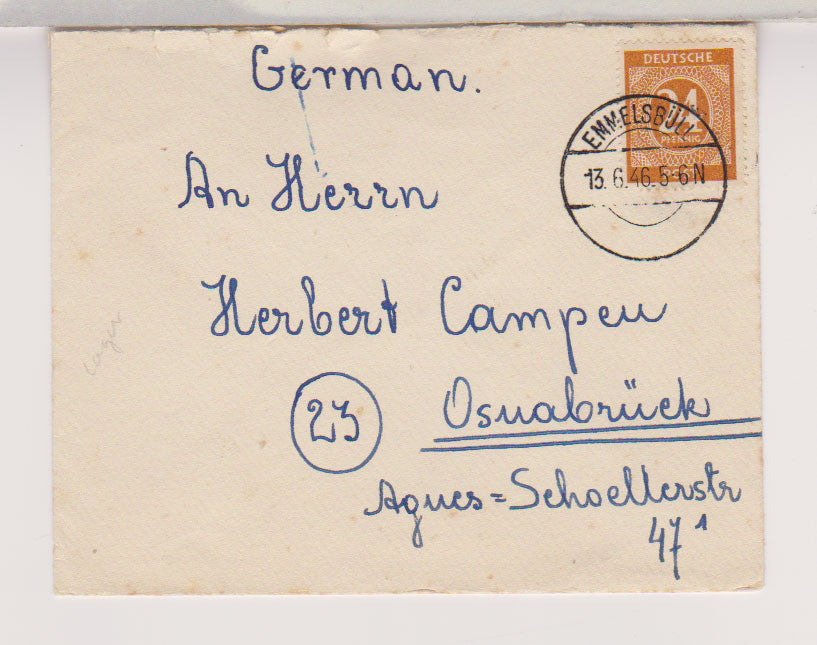 German.
DEUTSCHE
24
PFENNIG
EMMELSBÜLL
13.6.46.5-6N
An Herrn
Herbert Campen
23
Osnabrück
Agnes=Schoellerstr
47¹
Lager